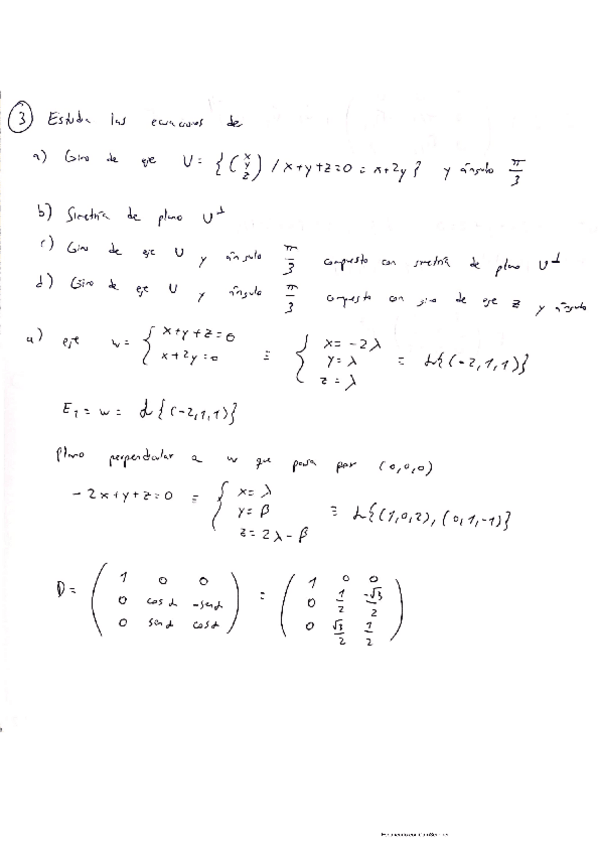 ③ Estudia las ecuaciones de
a) Giro de eje U = { (x y z) / x+y+z=0 = x+2y } y ángulo π/3
b) Simetría de plano U^⊥
c) Giro de eje U y ángulo π/3 compuesto con simetría de plano U^⊥
d) Giro de eje U y ángulo π/3 compuesto con giro de eje z y ángulo
a) eje w = { x+y+z=0 x+2y=0 ≡ { x=-2λ y=λ z=λ ≡ L{(-2,1,1)}
E₁ = w = L{(-2,1,1)}
Plano perpendicular a w que pasa por (0,0,0)
-2x+y+z=0 ≡ { x=λ y=β z=2λ-β ≡ L{(1,0,2), (0,1,-1)}
D = ( 1 0 0 0 cos α -sen α 0 sen α cos α ) = ( 1 0 0 0 1/2 -√3/2 0 √3/2 1/2 )